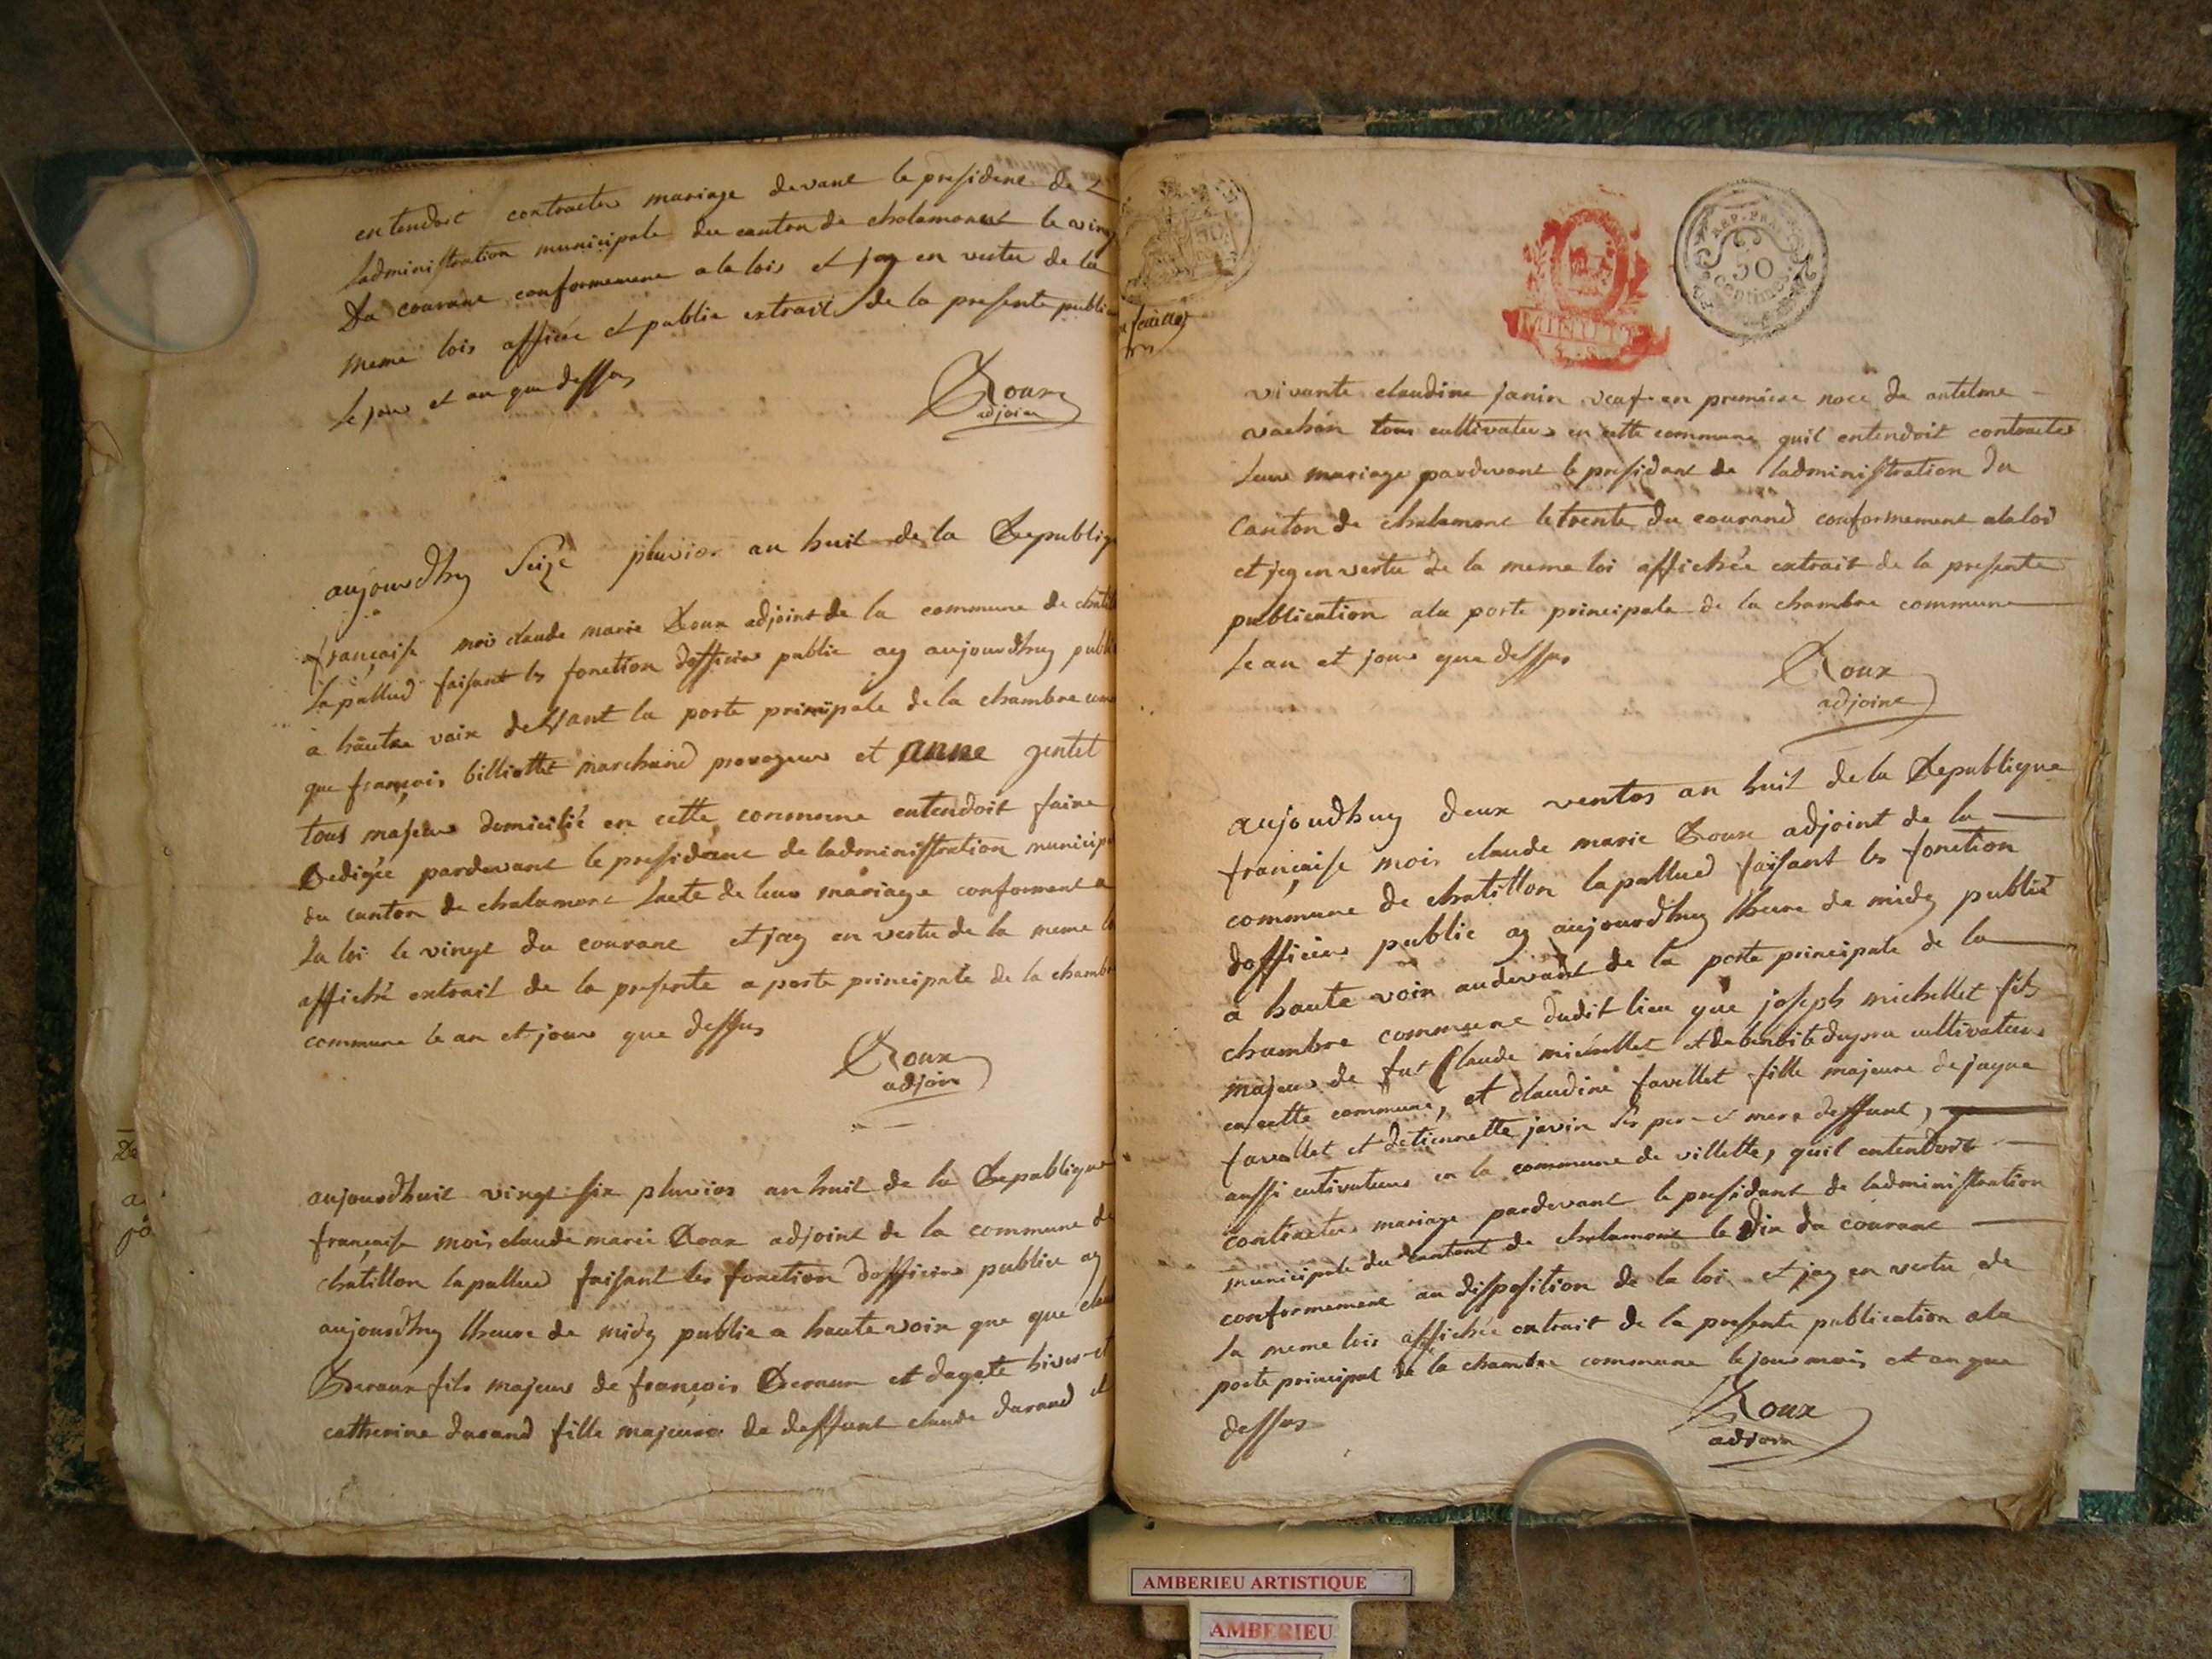 entendoit contracter mariage devant le president de L
ladministration municipale du canton de chalamont le ving
Du courant conformement a la lois et jay en vertu de la
meme lois affiche et publie extrait de la presente publi
Le jour et an que dessus
Roux
adjoint
aujourdhuy Seize pluvios an huit de la Republiq
française moi claude marie Roux adjoint de la commune de chatill
Lapallud faisant les fonction dofficier public ay aujourdhuy publi
a hautre voix devant la porte principale de la chambre com
que françois billiottet marchand et anne gentet
tous majeur domicilié en cette commune entendoit faire
Redigée pardevant le president de ladministration municip
du canton de chalamont lacte de leur mariage conforment a
La loi le vingt du courant et jay en vertu de la meme lo
affiché extrait de la presente a porte principale de la chambr
commune le an et jour que dessus
Roux
adjoin
aujourdhuit vingt six pluvios an huit de la Republique
française mois claude marie Roux adjoint de la commune de
chatillon lapallud faisant les fonction dofficier public ay
aujourdhuy lheure de midy publie a haute voix que que clau
Deraux fils majeur de françois Deraux et dagate hiver et
catherine durand fille majeure de deffunt claude durand et
REP. FRA.
50
centimes
MINUTE
vivante claudine janin veuf en premiere noce de antelme
vachon tous cultivateur en cette commune quil entendoit contracter
Leur mariage pardevant le president de ladministration du
Canton de chalamont le trente du courand conformement ala loi
et jay en vertu de la meme loi affichée extrait de la presente
publication ala porte principale de la chambre commune
Le an et jour que dessus
Roux
adjoint
aujoudhuy deux ventos an huit de la Republique
française mois claude marie Roux adjoint de la
commune de chatillon lapallud faisant les fonction
dofficier public ay aujourdhuy lheure de midy publié
a haute voix audevant de la porte principale de la
chambre commune dudit lieu que joseph michellet fils
majeur de fut Claude michellet et de benoite cultivateur
en cette commune, et claudine favellet fille majeure de jaque
favellet et detiennette janin ses pere et mere deffunt,
aussi cutivateur en la commune de villette, quil entendoit
contracter mariage pardevant le president de ladministration
municipale du cantont de chalamont le Dix du courant
conformement au disposition de la loi et jay en vertu de
la meme lois affichée extrait de la presente publication ala
porte principal de la chambre commune le jour mois et an que
dessus
Roux
adjoin
AMBERIEU ARTISTIQUE
AMBERIEU